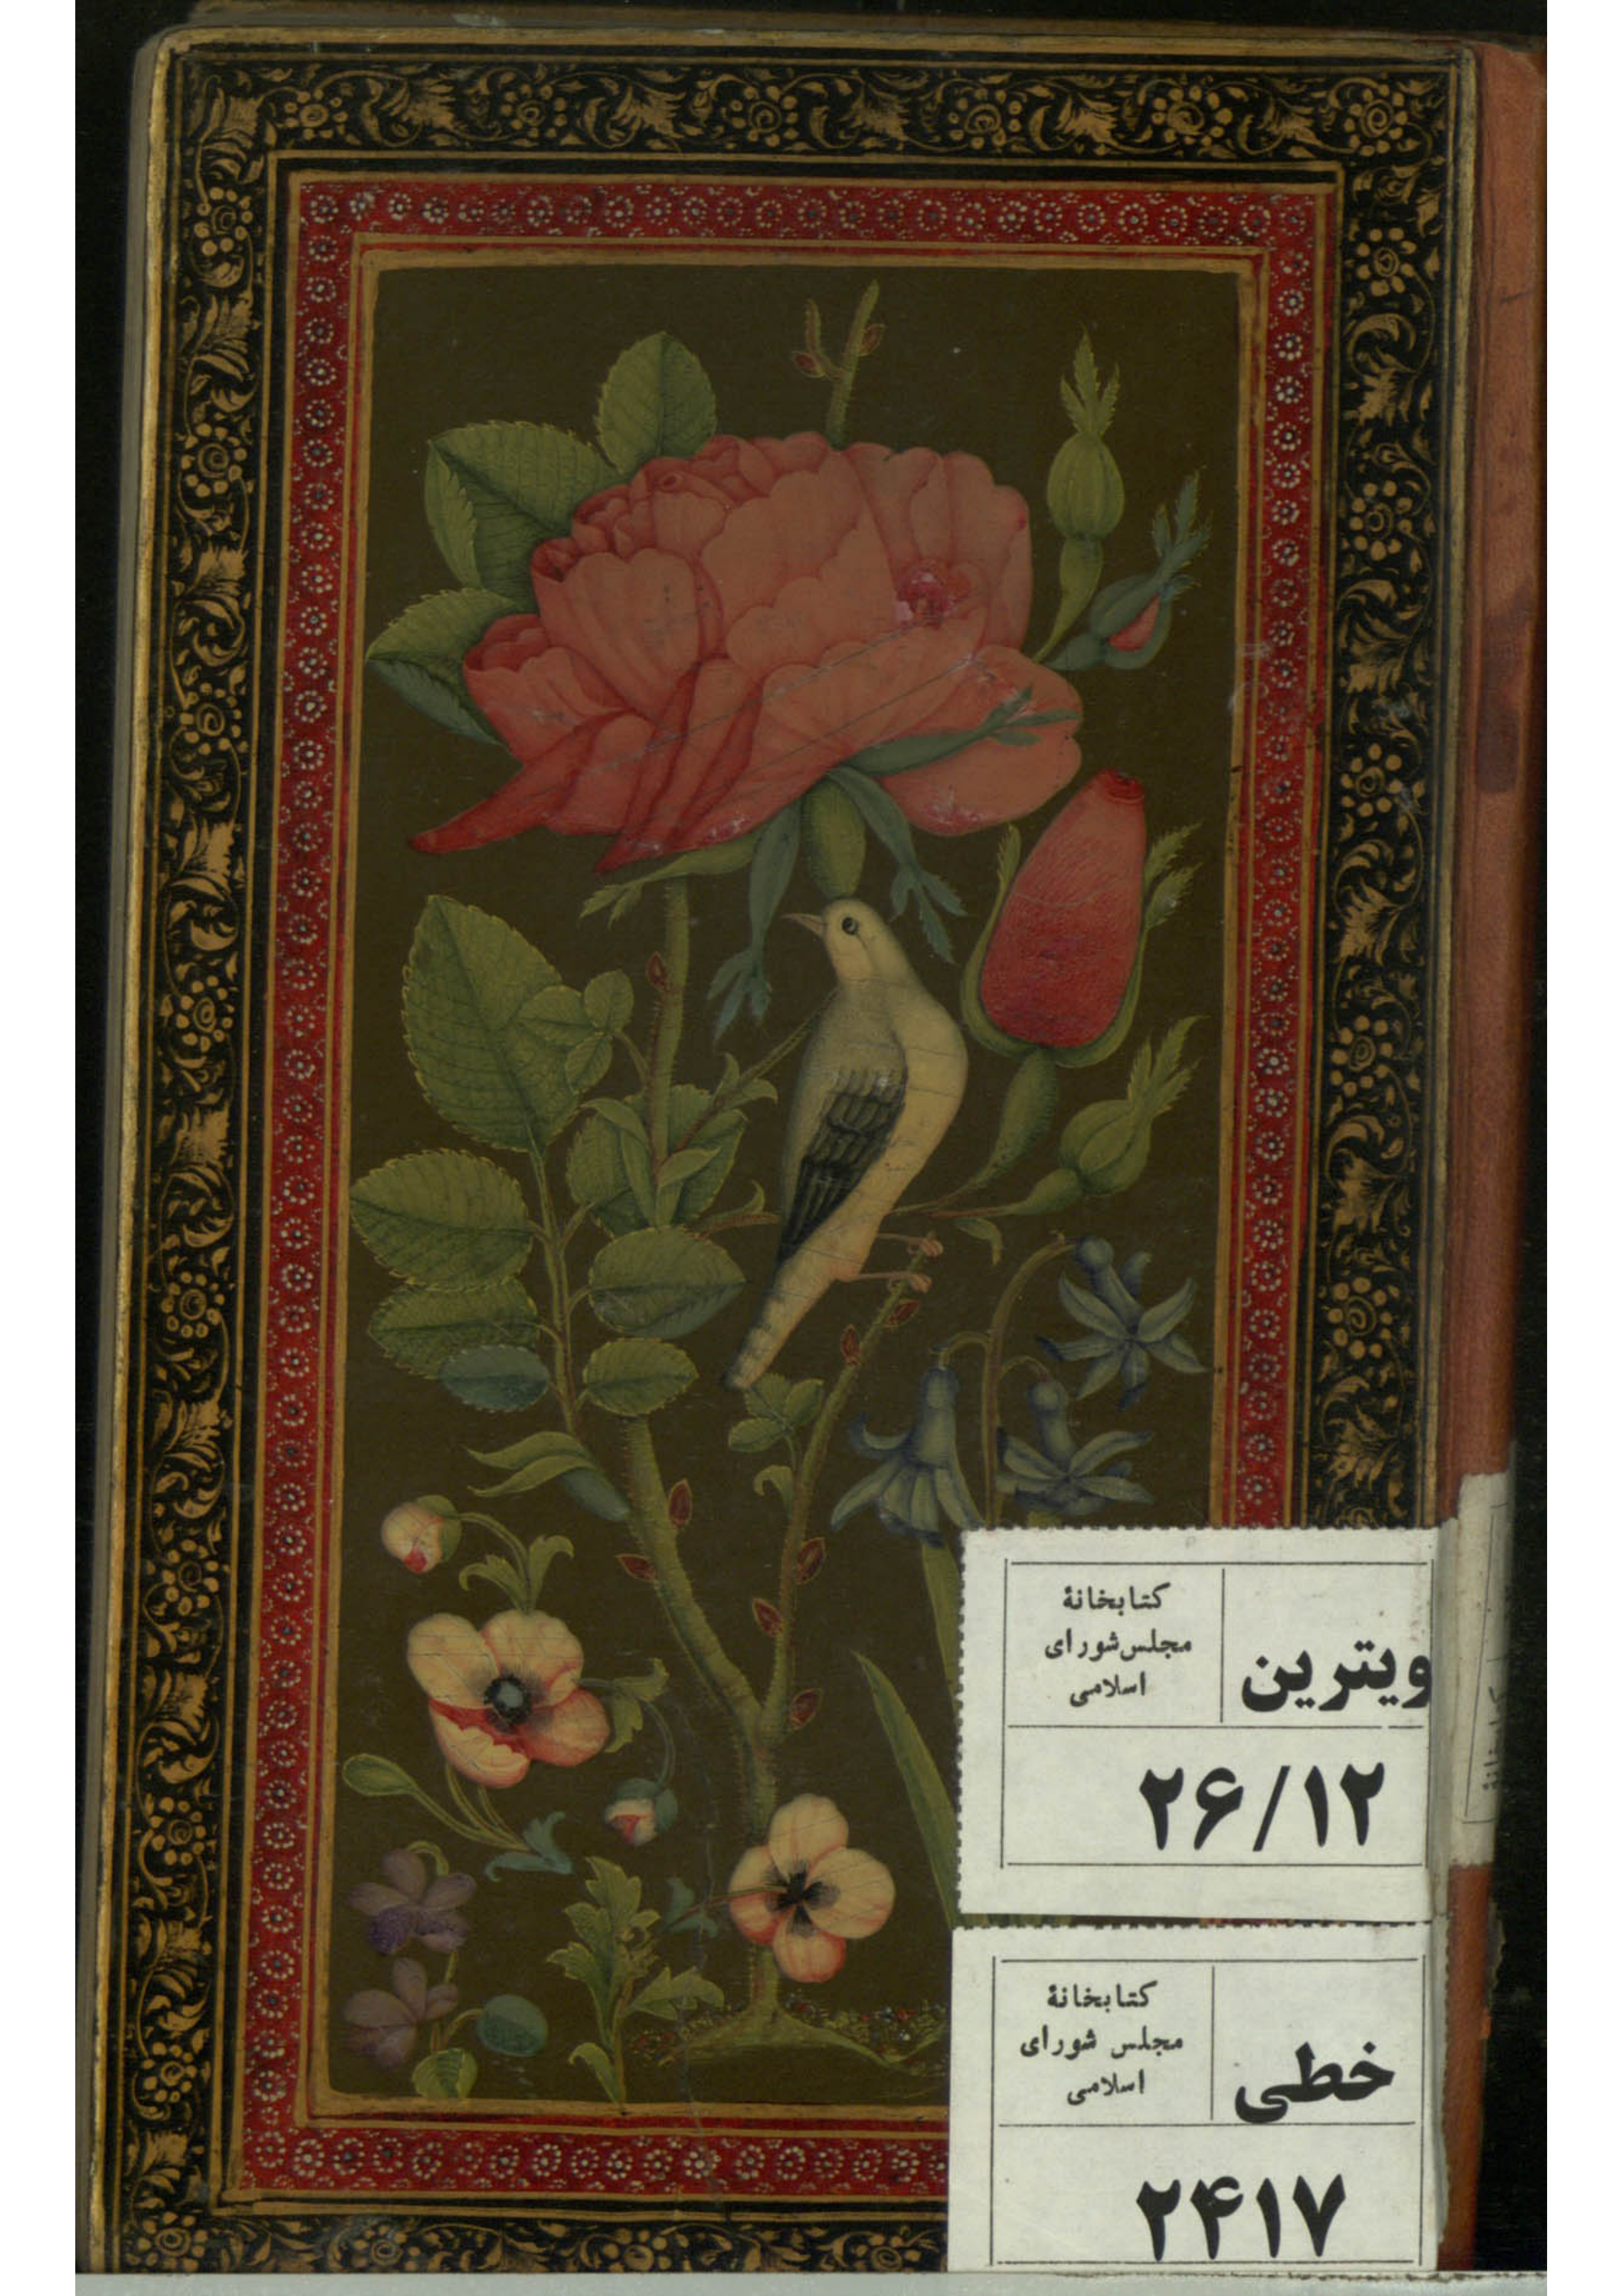 کتابخانهٔ
مجلس شورای
اسلامی
ویترین
۲۶/۱۲
کتابخانهٔ
مجلس شورای
اسلامی
خطی
۲۴۱۷